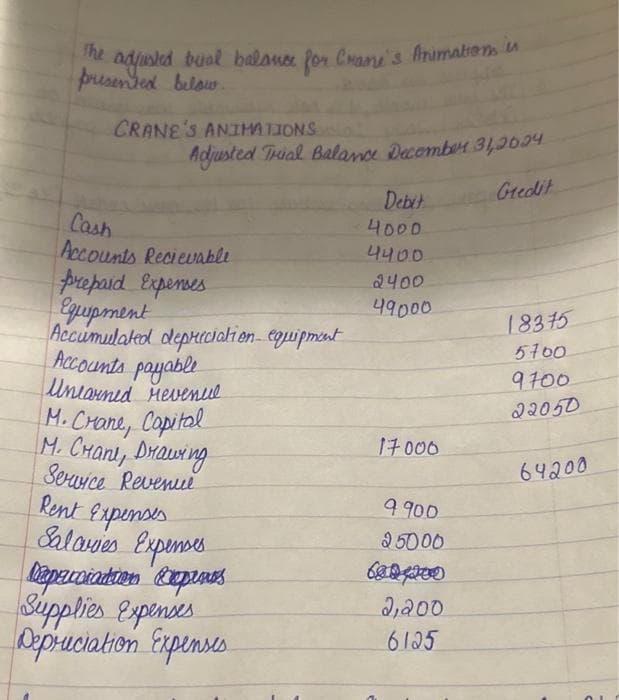 The adjusted trial balance for Crane's Animations is
presented below.
CRANE'S ANIMATIONS
Adjusted Trial Balance December 31, 2024
Debit Credit
Cash 4000
Accounts Recievable 4400
prepaid Expenses 2400
Equipment 49000
Accumulated depreciation-equipment 18375
Accounts payable 5700
Unearned revenue 9700
M. Crane, Capital 22050
M. Crane, Drawing 17000
Service Revenue 64200
Rent Expenses 9900
Salaries Expenses 25000
Supplies Expenses 2,200
Depreciation Expenses 6125